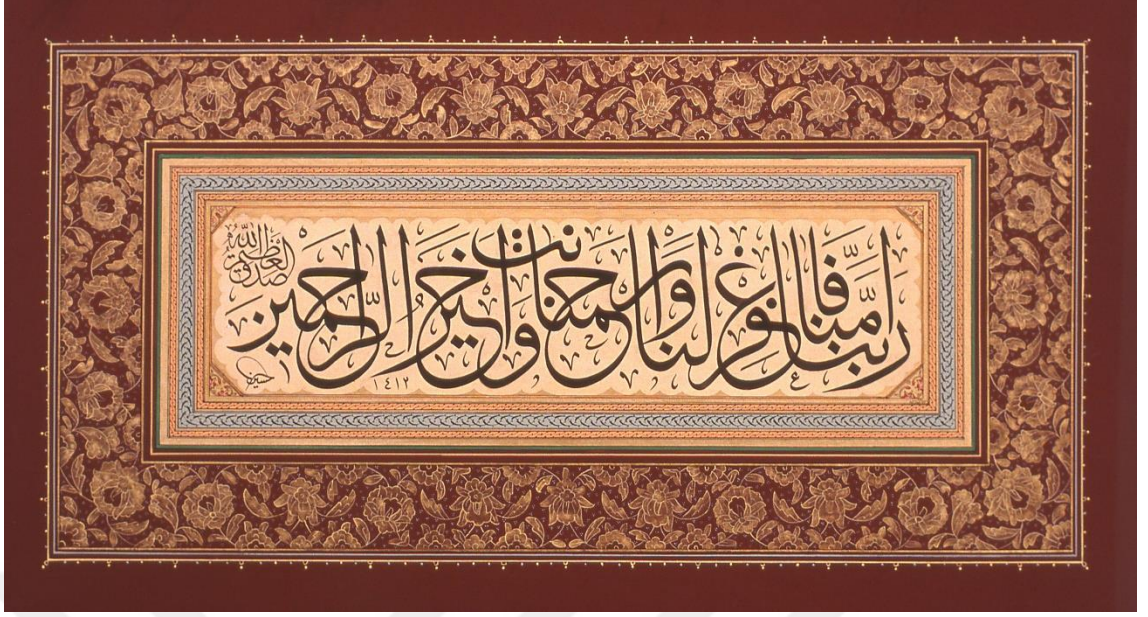 ربنا امنا فاغفر لنا وارحمنا وانت خير الرحمين
صدق الله العظيم
١٤١٢